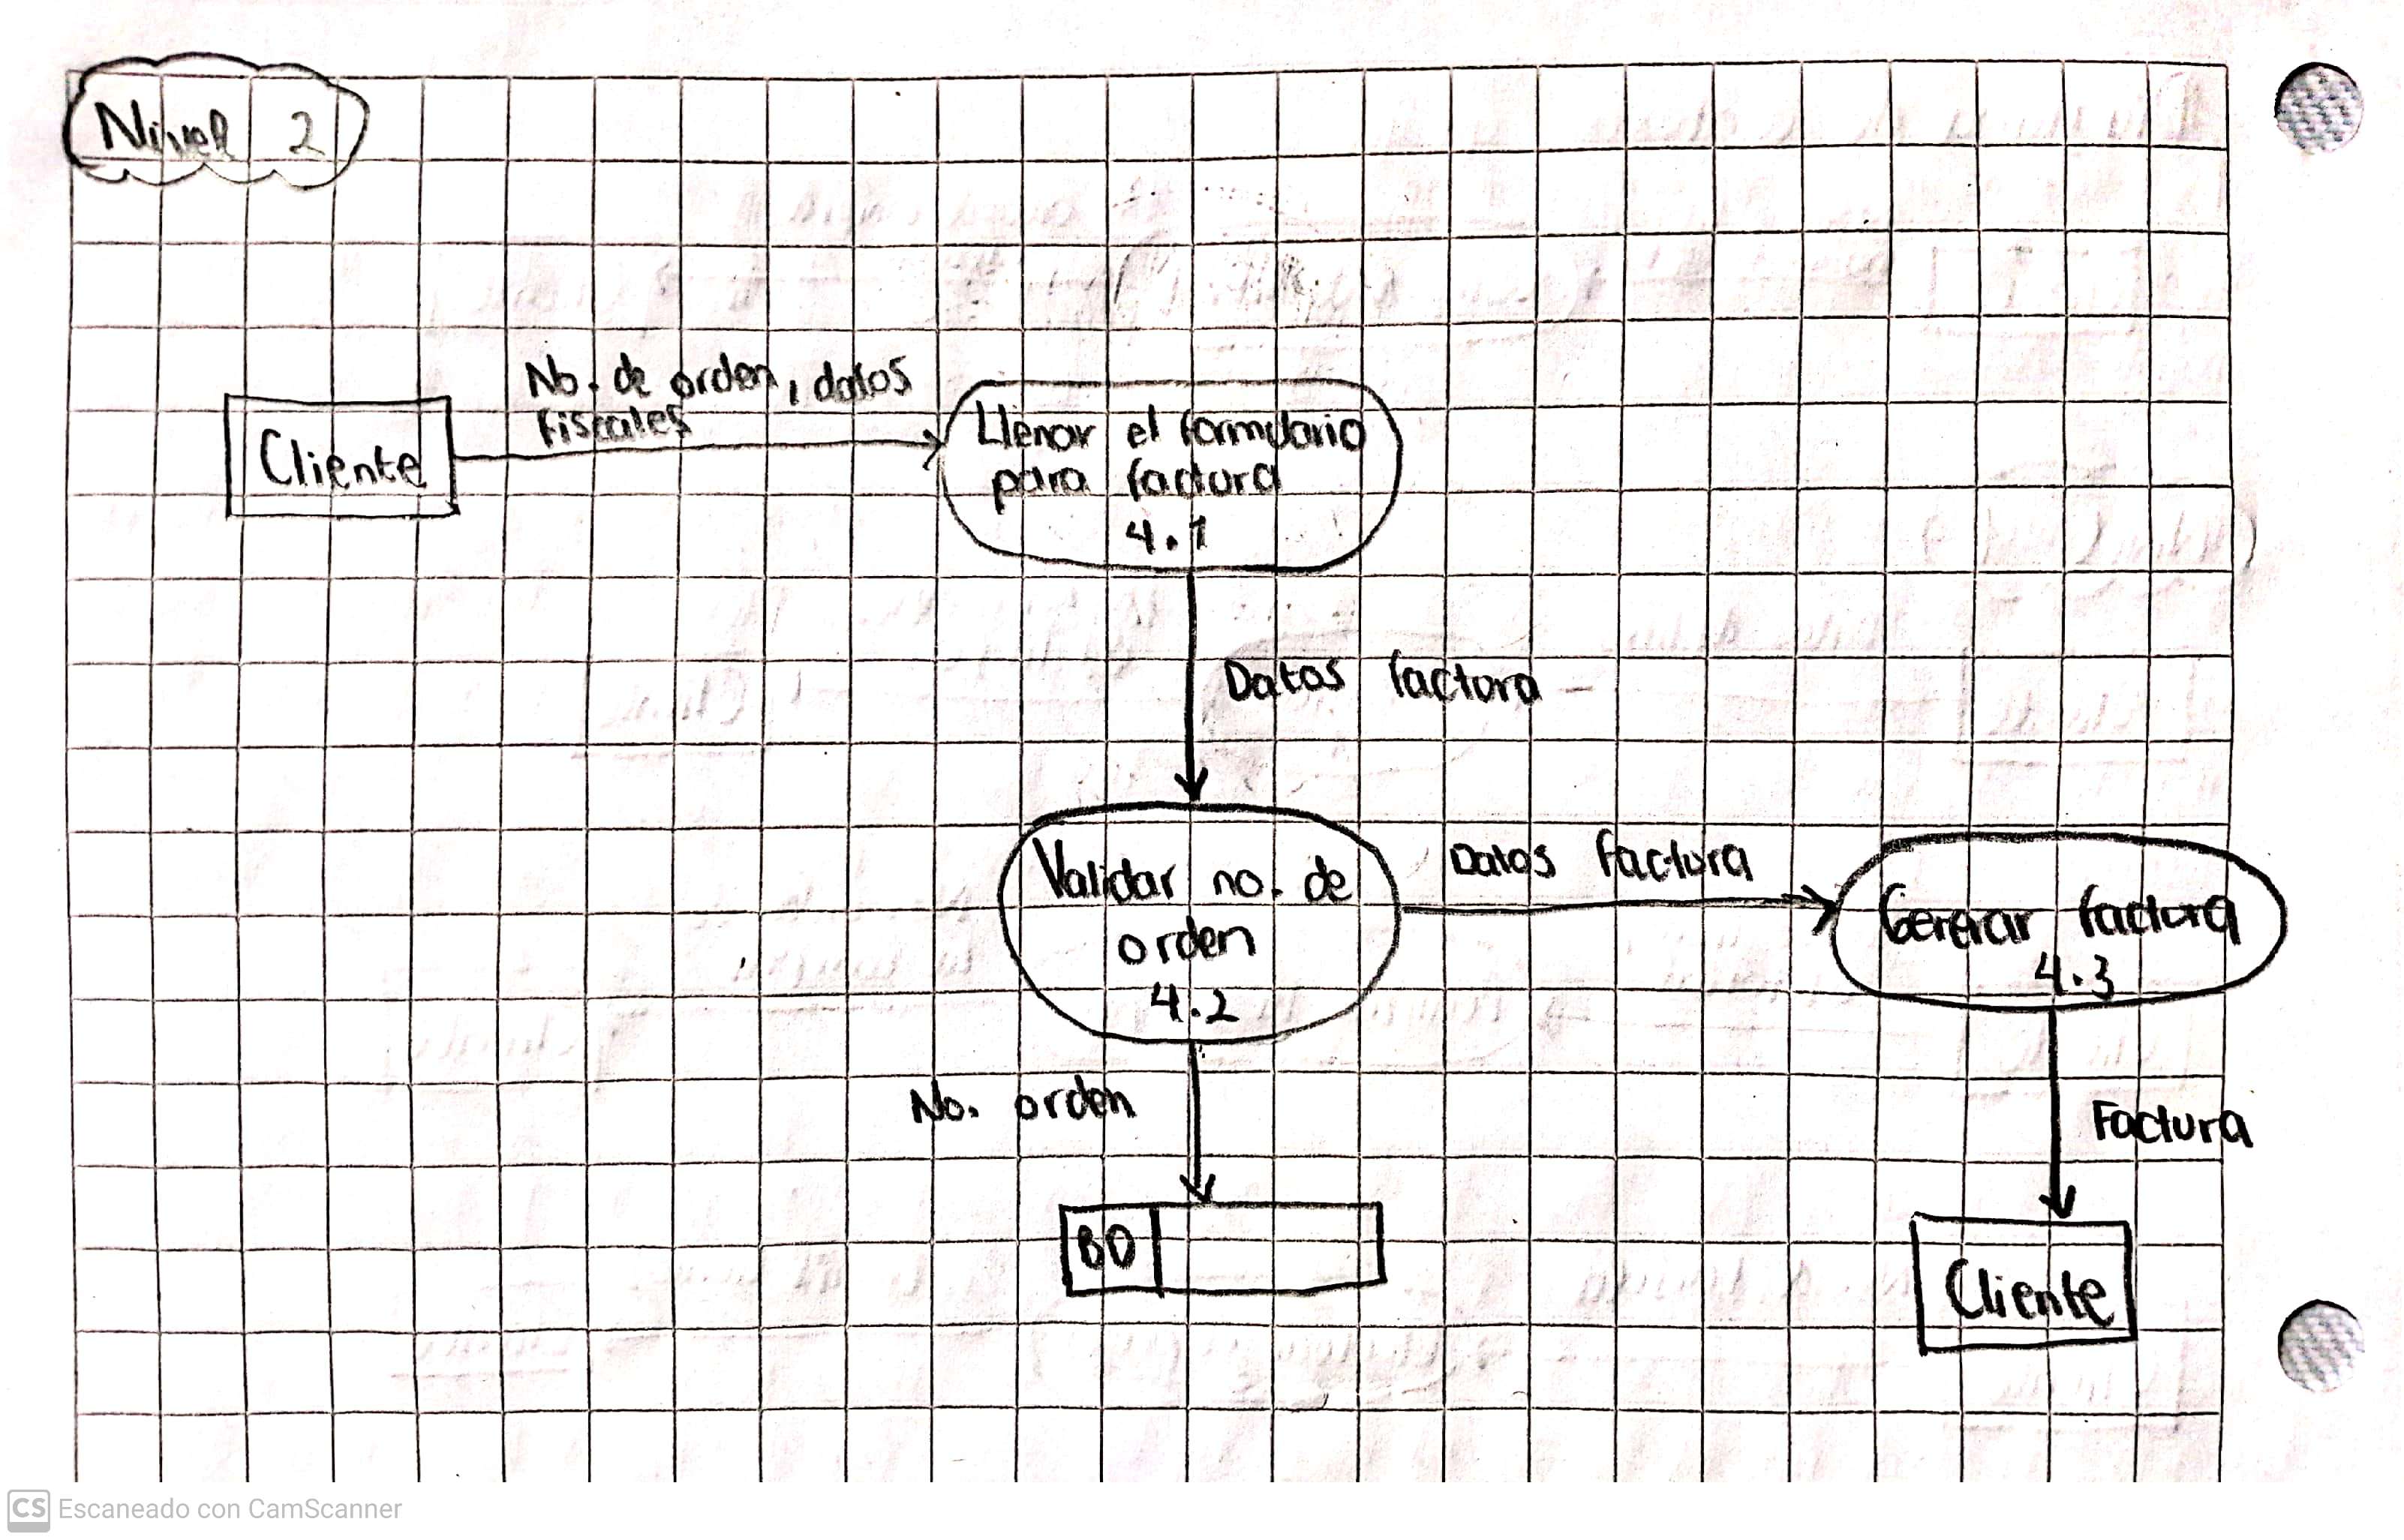 Nivel 2
No. de orden, datos
fiscales
Cliente
Llenar el formulario
para factura
4.1
Datos factura
Validar no. de
orden
4.2
Datos factura
Generar factura
4.3
No. orden
Factura
BD
Cliente
CS Escaneado con CamScanner